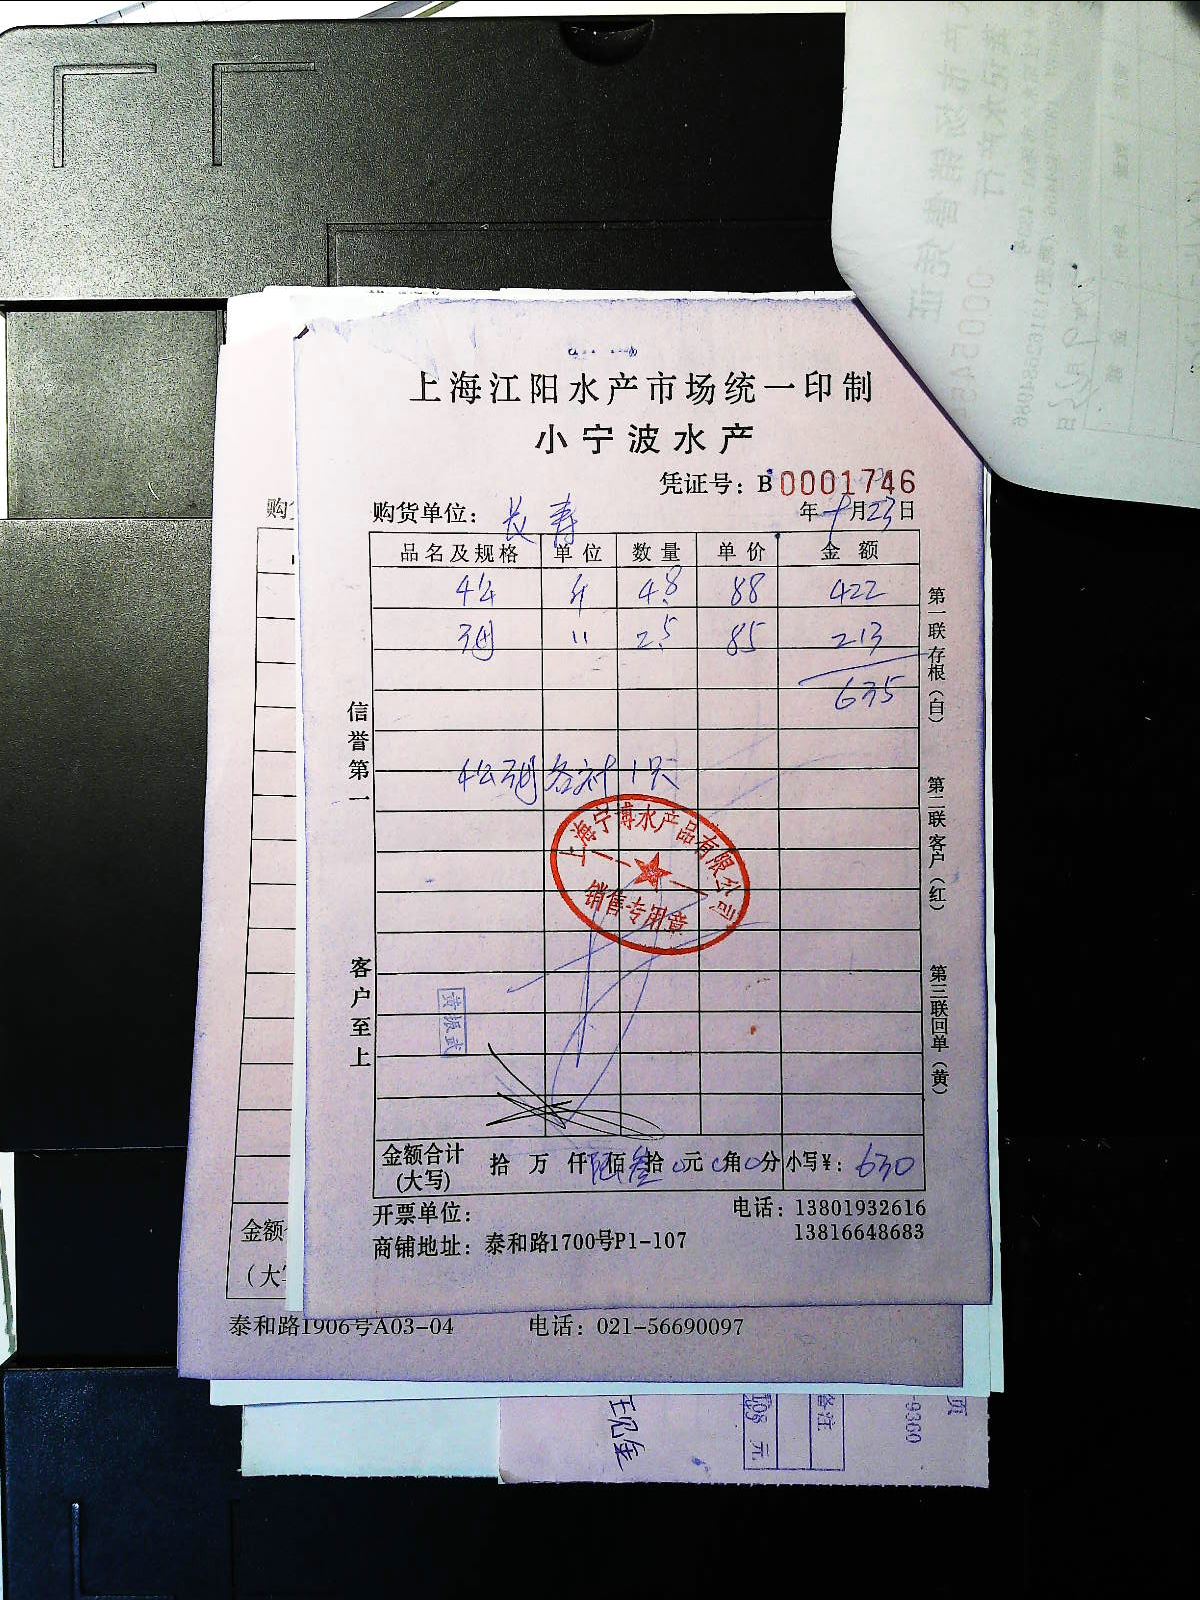 上海江阳水产市场统一印制
小宁波水产
凭证号：B 0001746
购货单位：长寿 年 月23日
品名及规格 单位 数量 单价 金额
斤 4.8 88 422
" 2.5 85 213
635
各补1只
上海宁博水产品有限公司
销售专用章
信誉第一
客户至上
第一联 存根（白）
第二联 客户（红）
第三联 回单（黄）
金额合计 拾 万 仟 陆 佰 叁 拾 0 元 0 角 0 分 小写¥：630
(大写)
开票单位：
电话：13801932616
13816648683
商铺地址：泰和路1700号P1-107
购
金额
（大
泰和路1906号A03-04 电话：021-56690097
备注
元
-9360
页